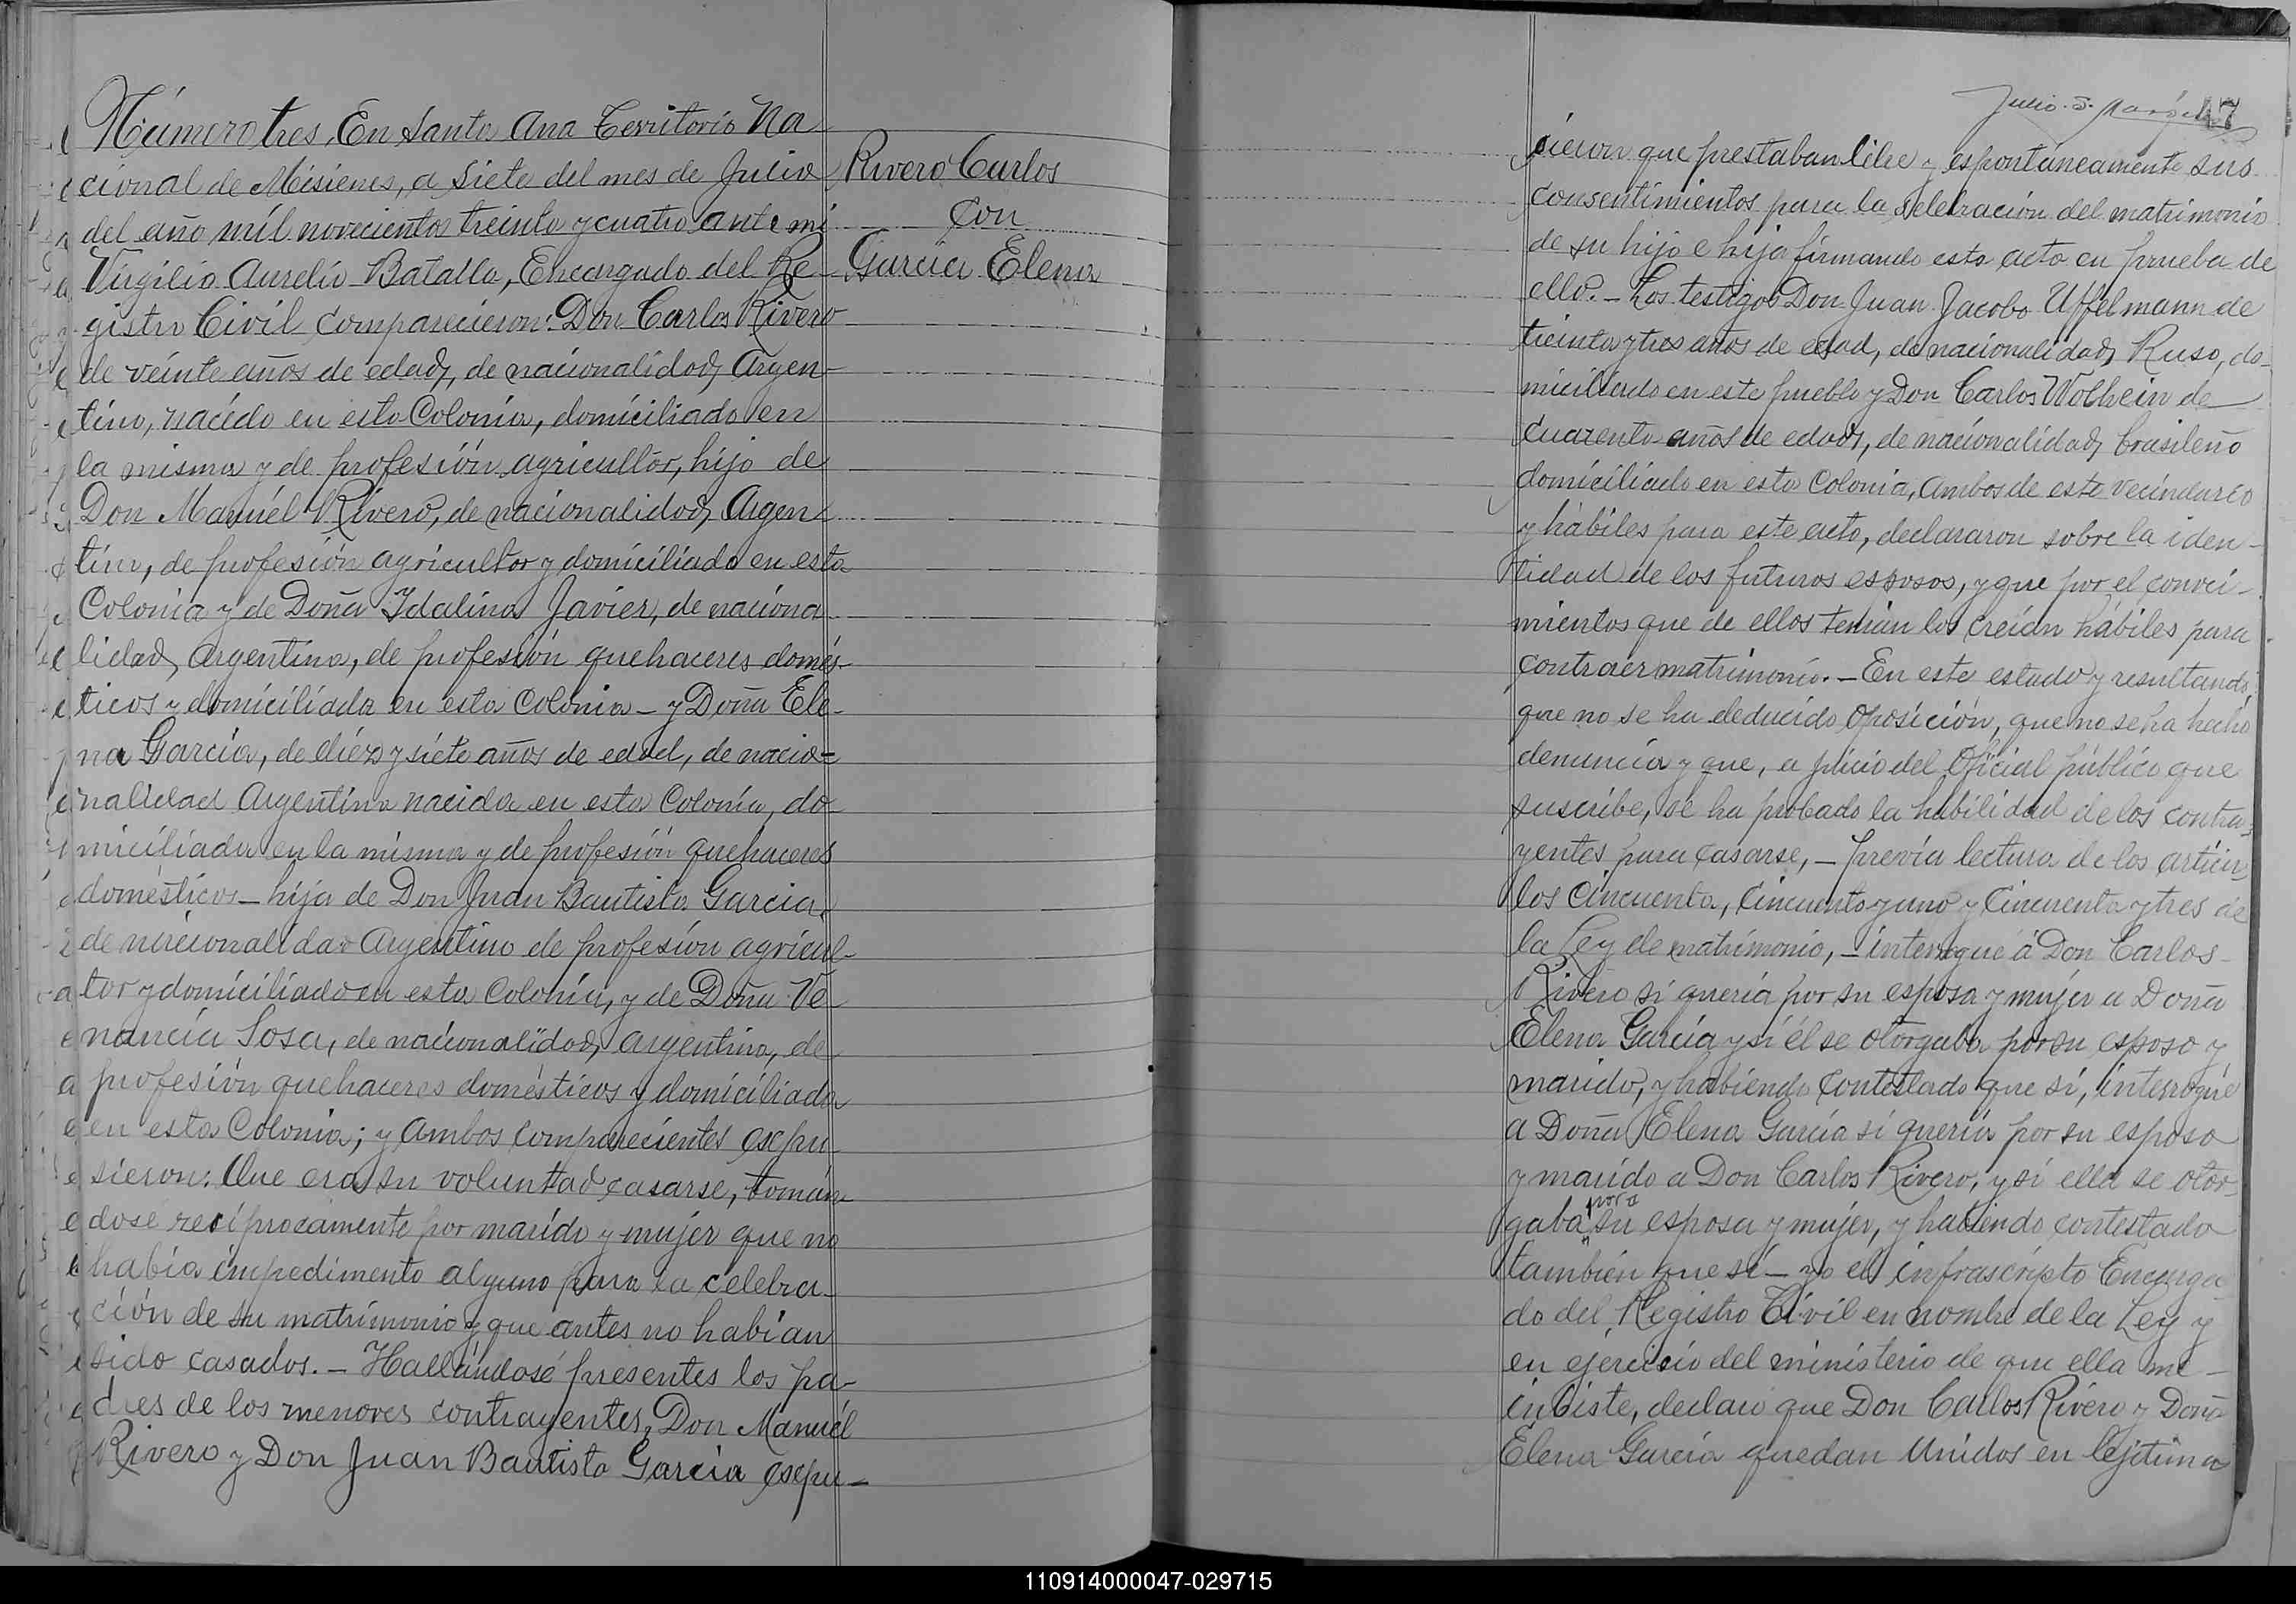 Número tres, En Santa Ana Territorio Na
cional de Misiones, a siete del mes de Julio
del año mil novecientos treinta y cuatro ante mi
Virgilio Aurelio Batalla, Encargado del Re-
gistro Civil comparecieron: Don Carlos Rivero
de veinte años de edad, de nacionalidad Argen-
tino, nacido en esta Colonia, domiciliado en
la misma y de profesión agricultor, hijo de
Don Manuél Rivero, de nacionalidad Argen
tino, de profesión agricultor y domiciliado en esta
Colonia y de Doña Idalina Javier, de naciona
lidad, Argentina, de profesión quehaceres domés-
ticos y domiciliada en esta Colonia - y Doña Ele-
na García, de diez y siete años de edad, de nacio=
nalidad Argentina nacida en esta Colonia, do
miciliada en la misma y de profesión quehaceres
domésticos - hija de Don Juan Bautista Garcia,
de nacionalidad Argentino de profesión agricul-
tor y domiciliado en esta Colonia, y de Doña Ve
nancia Sosa, de nacionalidad, argentina, de
profesión quehaceres domésticos y domiciliada
en esta Colonia; y ambos comparecientes expu
sieron: Que era su voluntad casarse, tomán
dose recíprocamente por marido y mujer que no
había impedimento alguno para la celebra-
ción de su matrimonio y que antes no habían
sido casados. - Hallándose presentes los pa-
dres de los menores contrayentes, Don Manuél
Rivero y Don Juan Bautista García expu-
Rivero Carlos
con
García Elena
47
sieron que prestaban libre y espontáneamente sus
consentimientos para la selebración del matrimonio
de su hijo e hija firmando esta acta en prueba de
ello. - Los testigos Don Juan Jacobo Uffelmann de
treinta y tres años de edad, de nacionalidad, Ruso, do-
miciliado en este pueblo y Don Carlos Wolhein de
cuarenta años de edad, de nacionalidad, brasileño
domiciliado en esta Colonia, ambos de este vecindario
y hábiles para este acto, declararon sobre la iden-
tidad de los futuros esposos, y que por el conoci-
mientos que de ellos tenían los creían hábiles para
contraer matrimonio. - En este estado y resultando
que no se ha deducido oposición, que no se ha hecho
denuncia y que, a juicio del Oficial público que
suscribe, se ha probado la habilidad de los contra=
yentes para casarse, - previa lectura de los artícu=
los cincuenta, cincuenta y uno y cincuenta y tres de
la Ley de matrimonio, - interrogué á Don Carlos
Rivero si quería por su esposa y mujer a Doña
Elena García y si él se otorgaba por su esposo y
marido, y habiendo contestado que sí, interrogué
a Doña Elena García si quería por su esposo
y marido a Don Carlos Rivero, y si ella se otor-
por
gaba su esposa y mujer, y habiendo contestado
también que sí - yo el infrascripto Encarga
do del Registro Civil en nombre de la Ley y
en ejercicio del ministerio de que ella me
inviste, declaro que Don Carlos Rivero y Doña
Elena García quedan unidos en lejítimo
110914000047-029715